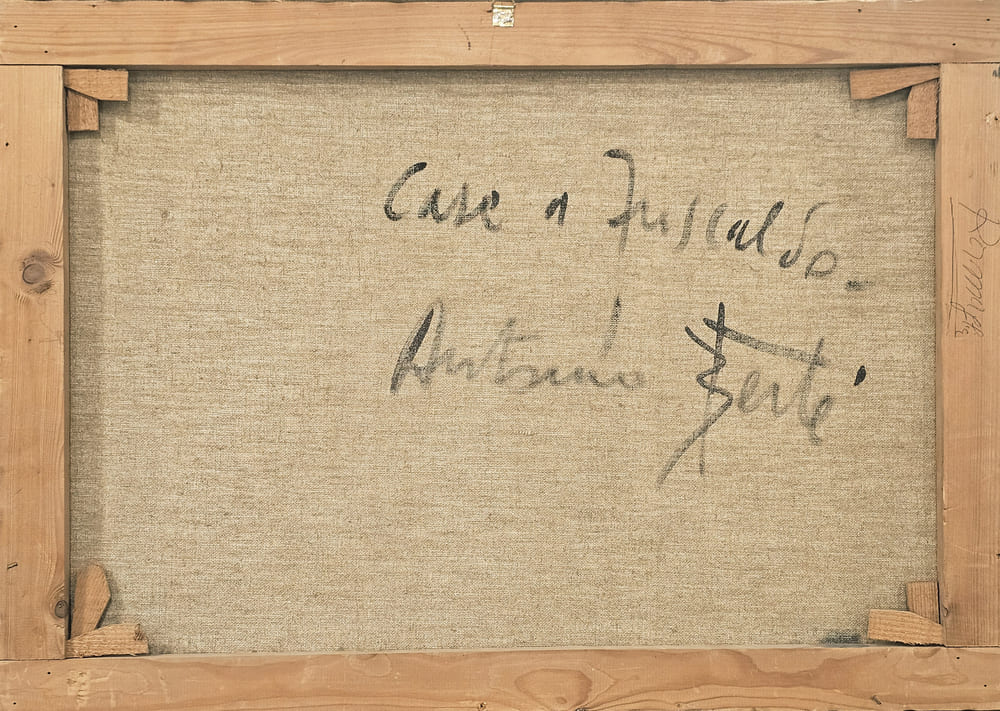 Case a Fuscaldo.
Antonio Berté